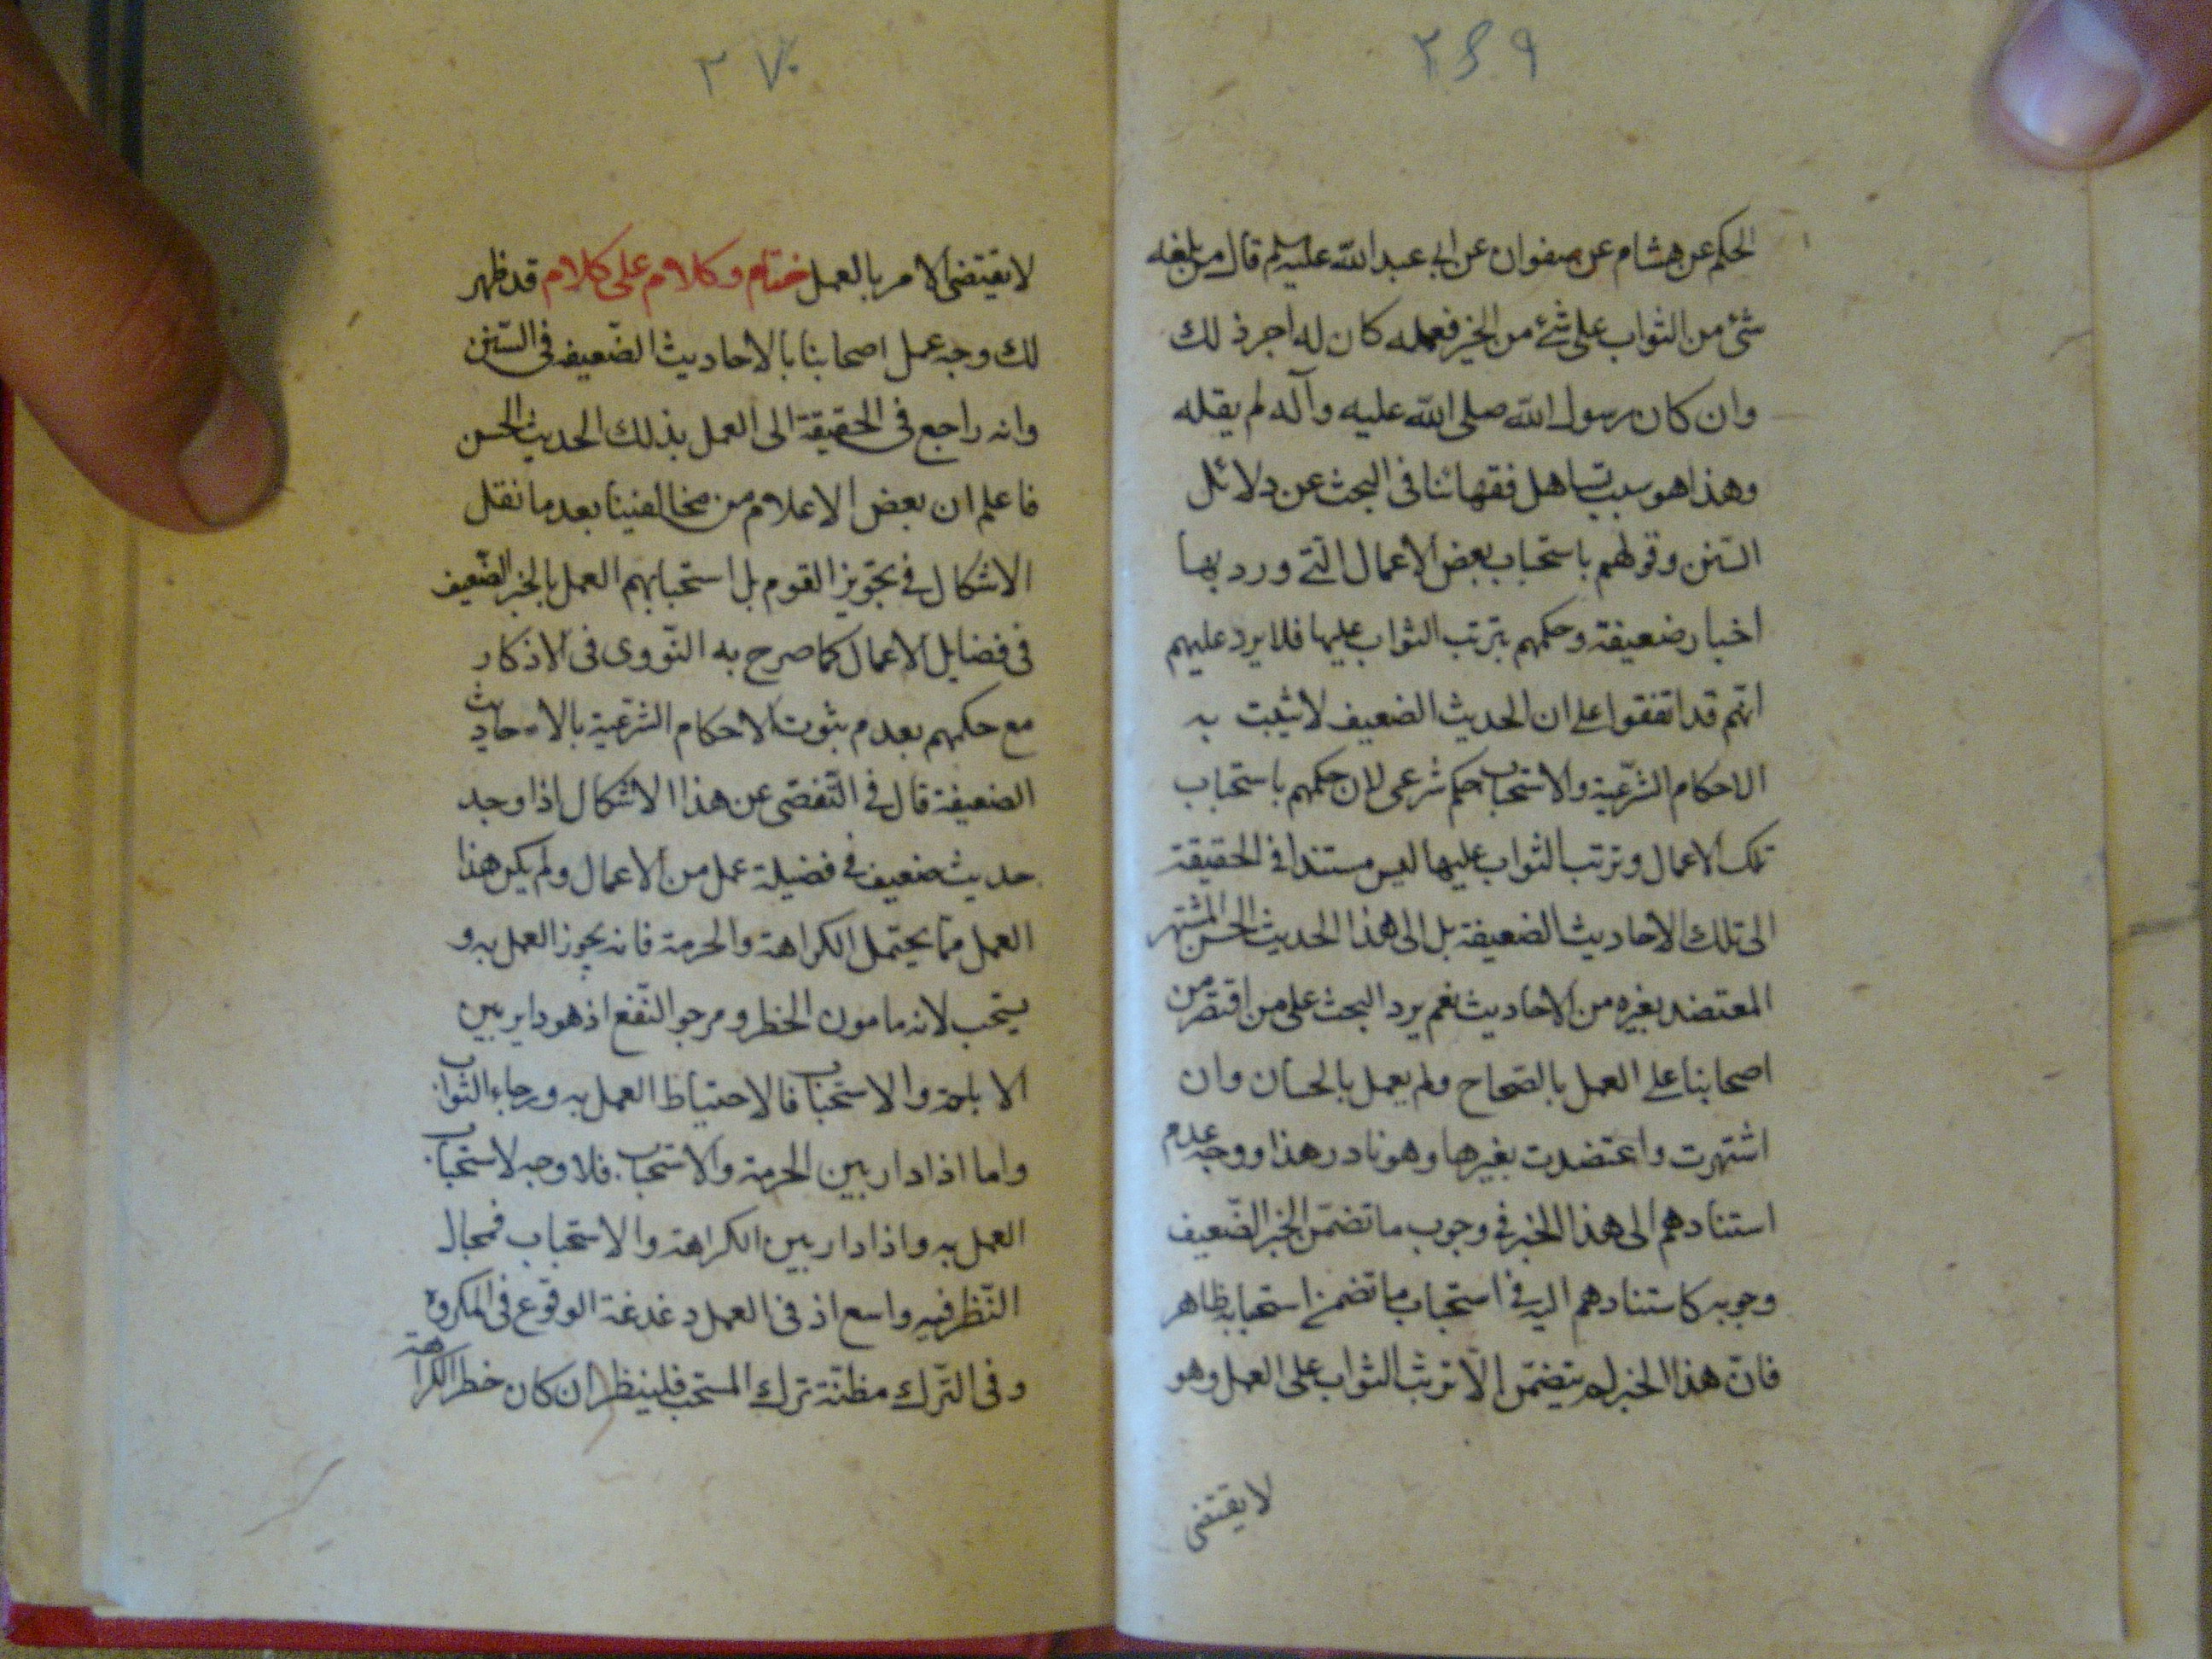 ٢٦٩
الحكم عن هشام عن صفوان عن ابى عبد الله عليه السلم قال من بلغه
شئ من الثواب على شئ من الخير فعمله كان له اجر ذلك
وان كان رسول الله صلى الله عليه وآله لم يقله
وهذا هو سبب تساهل فقهائنا فى البحث عن دلائل
السّنن وقولهم باستحباب بعض الاعمال الّتى ورد بها
اخبار ضعيفة وحكمهم بترتب الثواب عليها فلا يرد عليهم
انّهم قد اتفقوا على ان الحديث الضعيف لا يثبت به
الاحكام الشّرعيّة والاستحباب حكم شرعى لان حكمهم باستحباب
تلك الاعمال وترتب الثواب عليها ليس مستندا فى الحقيقة
الى تلك الاحاديث الضعيفة بل الى هذا الحديث الحسن المشتهر
المعتضد بغيره من الاحاديث نعم يرد البحث على من اقتصر من
اصحابنا على العمل بالصّحاح ولم يعمل بالحسان وان
اشتهرت واعتضدت بغيرها وهو نادر هذا ووجه عدم
استنادهم الى هذا الخبر فى وجوب ما تضمّن الخبر الضّعيف
وجوبه كاستنادهم اليه فى استحباب ما تضمن استحبابه ظاهر
فانّ هذا الخبر لم يتضمّن الّا ترتب الثواب على العمل وهو
لا يقتضى
٢٧٠
لا يقتضى الامر بالعمل ختام وكلام على كلام قد ظهر
لك وجه عمل اصحابنا بالاحاديث الضّعيفه فى السّنن
وانه راجع فى الحقيقة الى العمل بذلك الحديث الحسن
فاعلم ان بعض الاعلام من مخالفينا بعد ما نقل
الاشكال فى تجويز القوم بل استحبابهم العمل بالخبر الضّعيف
فى فضايل الاعمال كما صرح به النّووى فى الاذكار
مع حكمهم بعدم ثبوت الاحكام الشّرعيّة بالاحاديث
الضعيفة قال فى التّفصّى عن هذا الاشكال اذا وجد
حديث ضعيف فى فضيلة عمل من الاعمال ولم يكن هذا
العمل ممّا يحتمل الكراهة والحرمة فانه يجوز العمل به و
يستحب لانه مامون الخطر ومرجو النّفع اذ هو داير بين
الاباحة والاستحباب فالاحتياط العمل به ورجاء الثواب
واما اذا دار بين الحرمة والاستحباب فلا وجه لاستحباب
العمل به واذا دار بين الكراهة والاستحباب فمجال
النّظر فيه واسع اذ فى العمل دغدغة الوقوع فى المكروه
وفى التّرك مظنّة ترك المستحب فلينظر ان كان خطر الكراهة